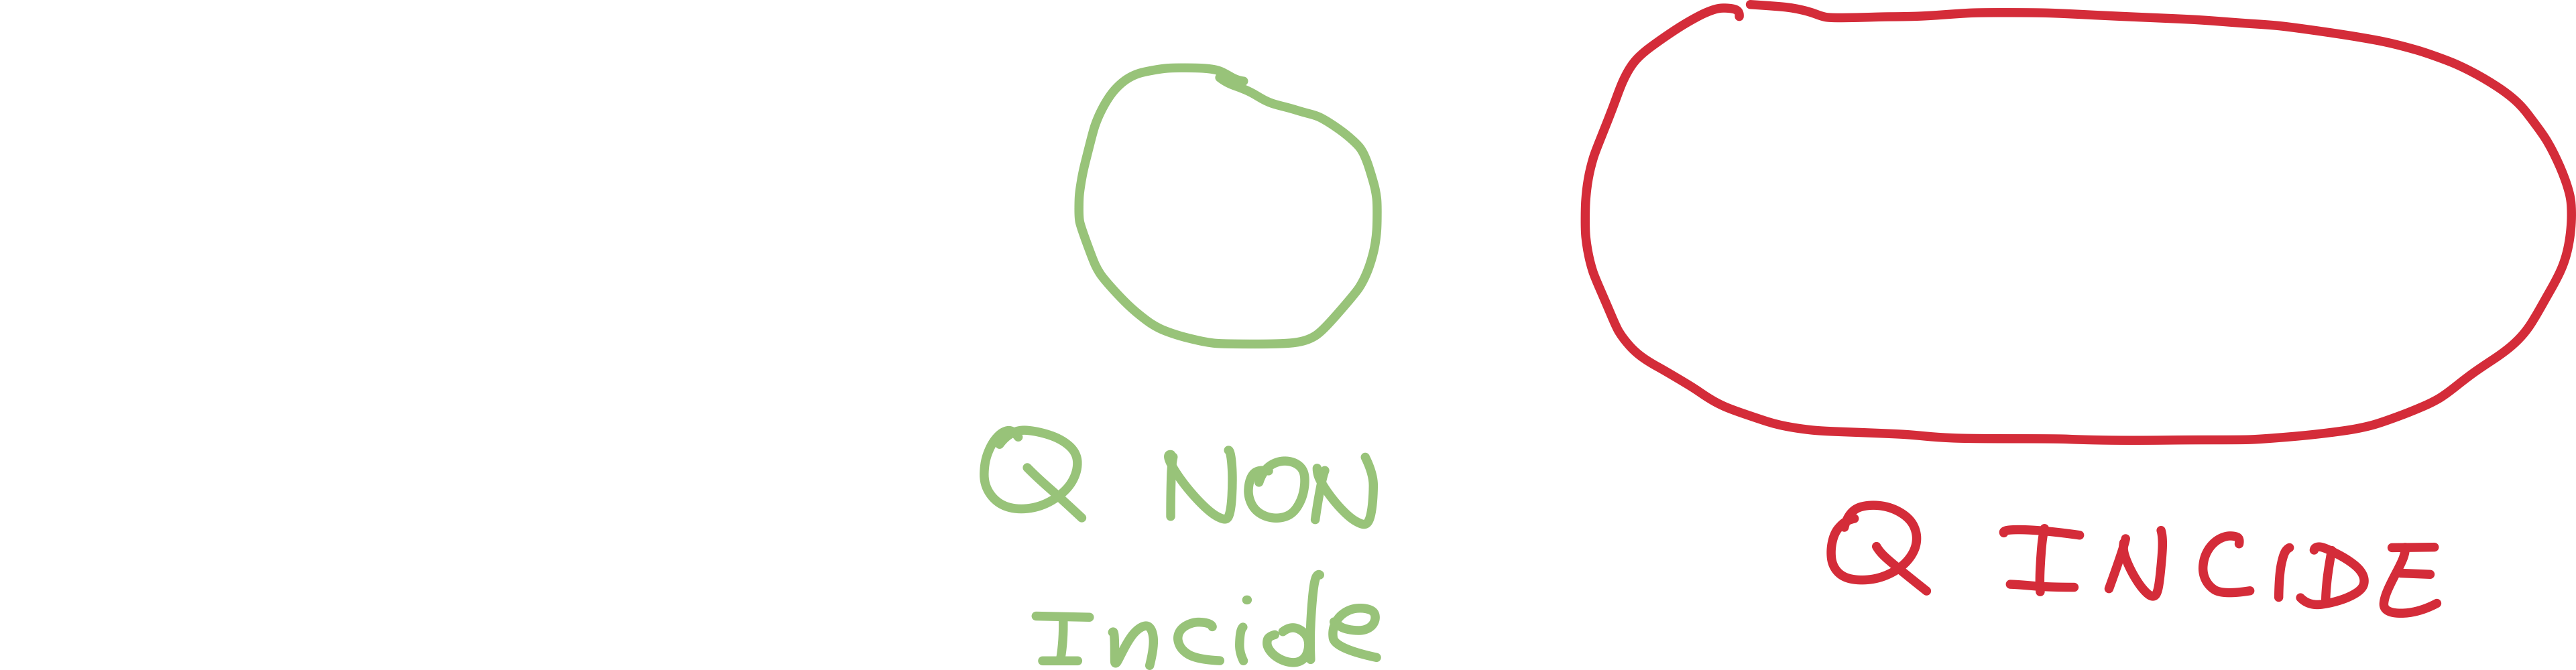 Q NON
Incide
Q INCIDE